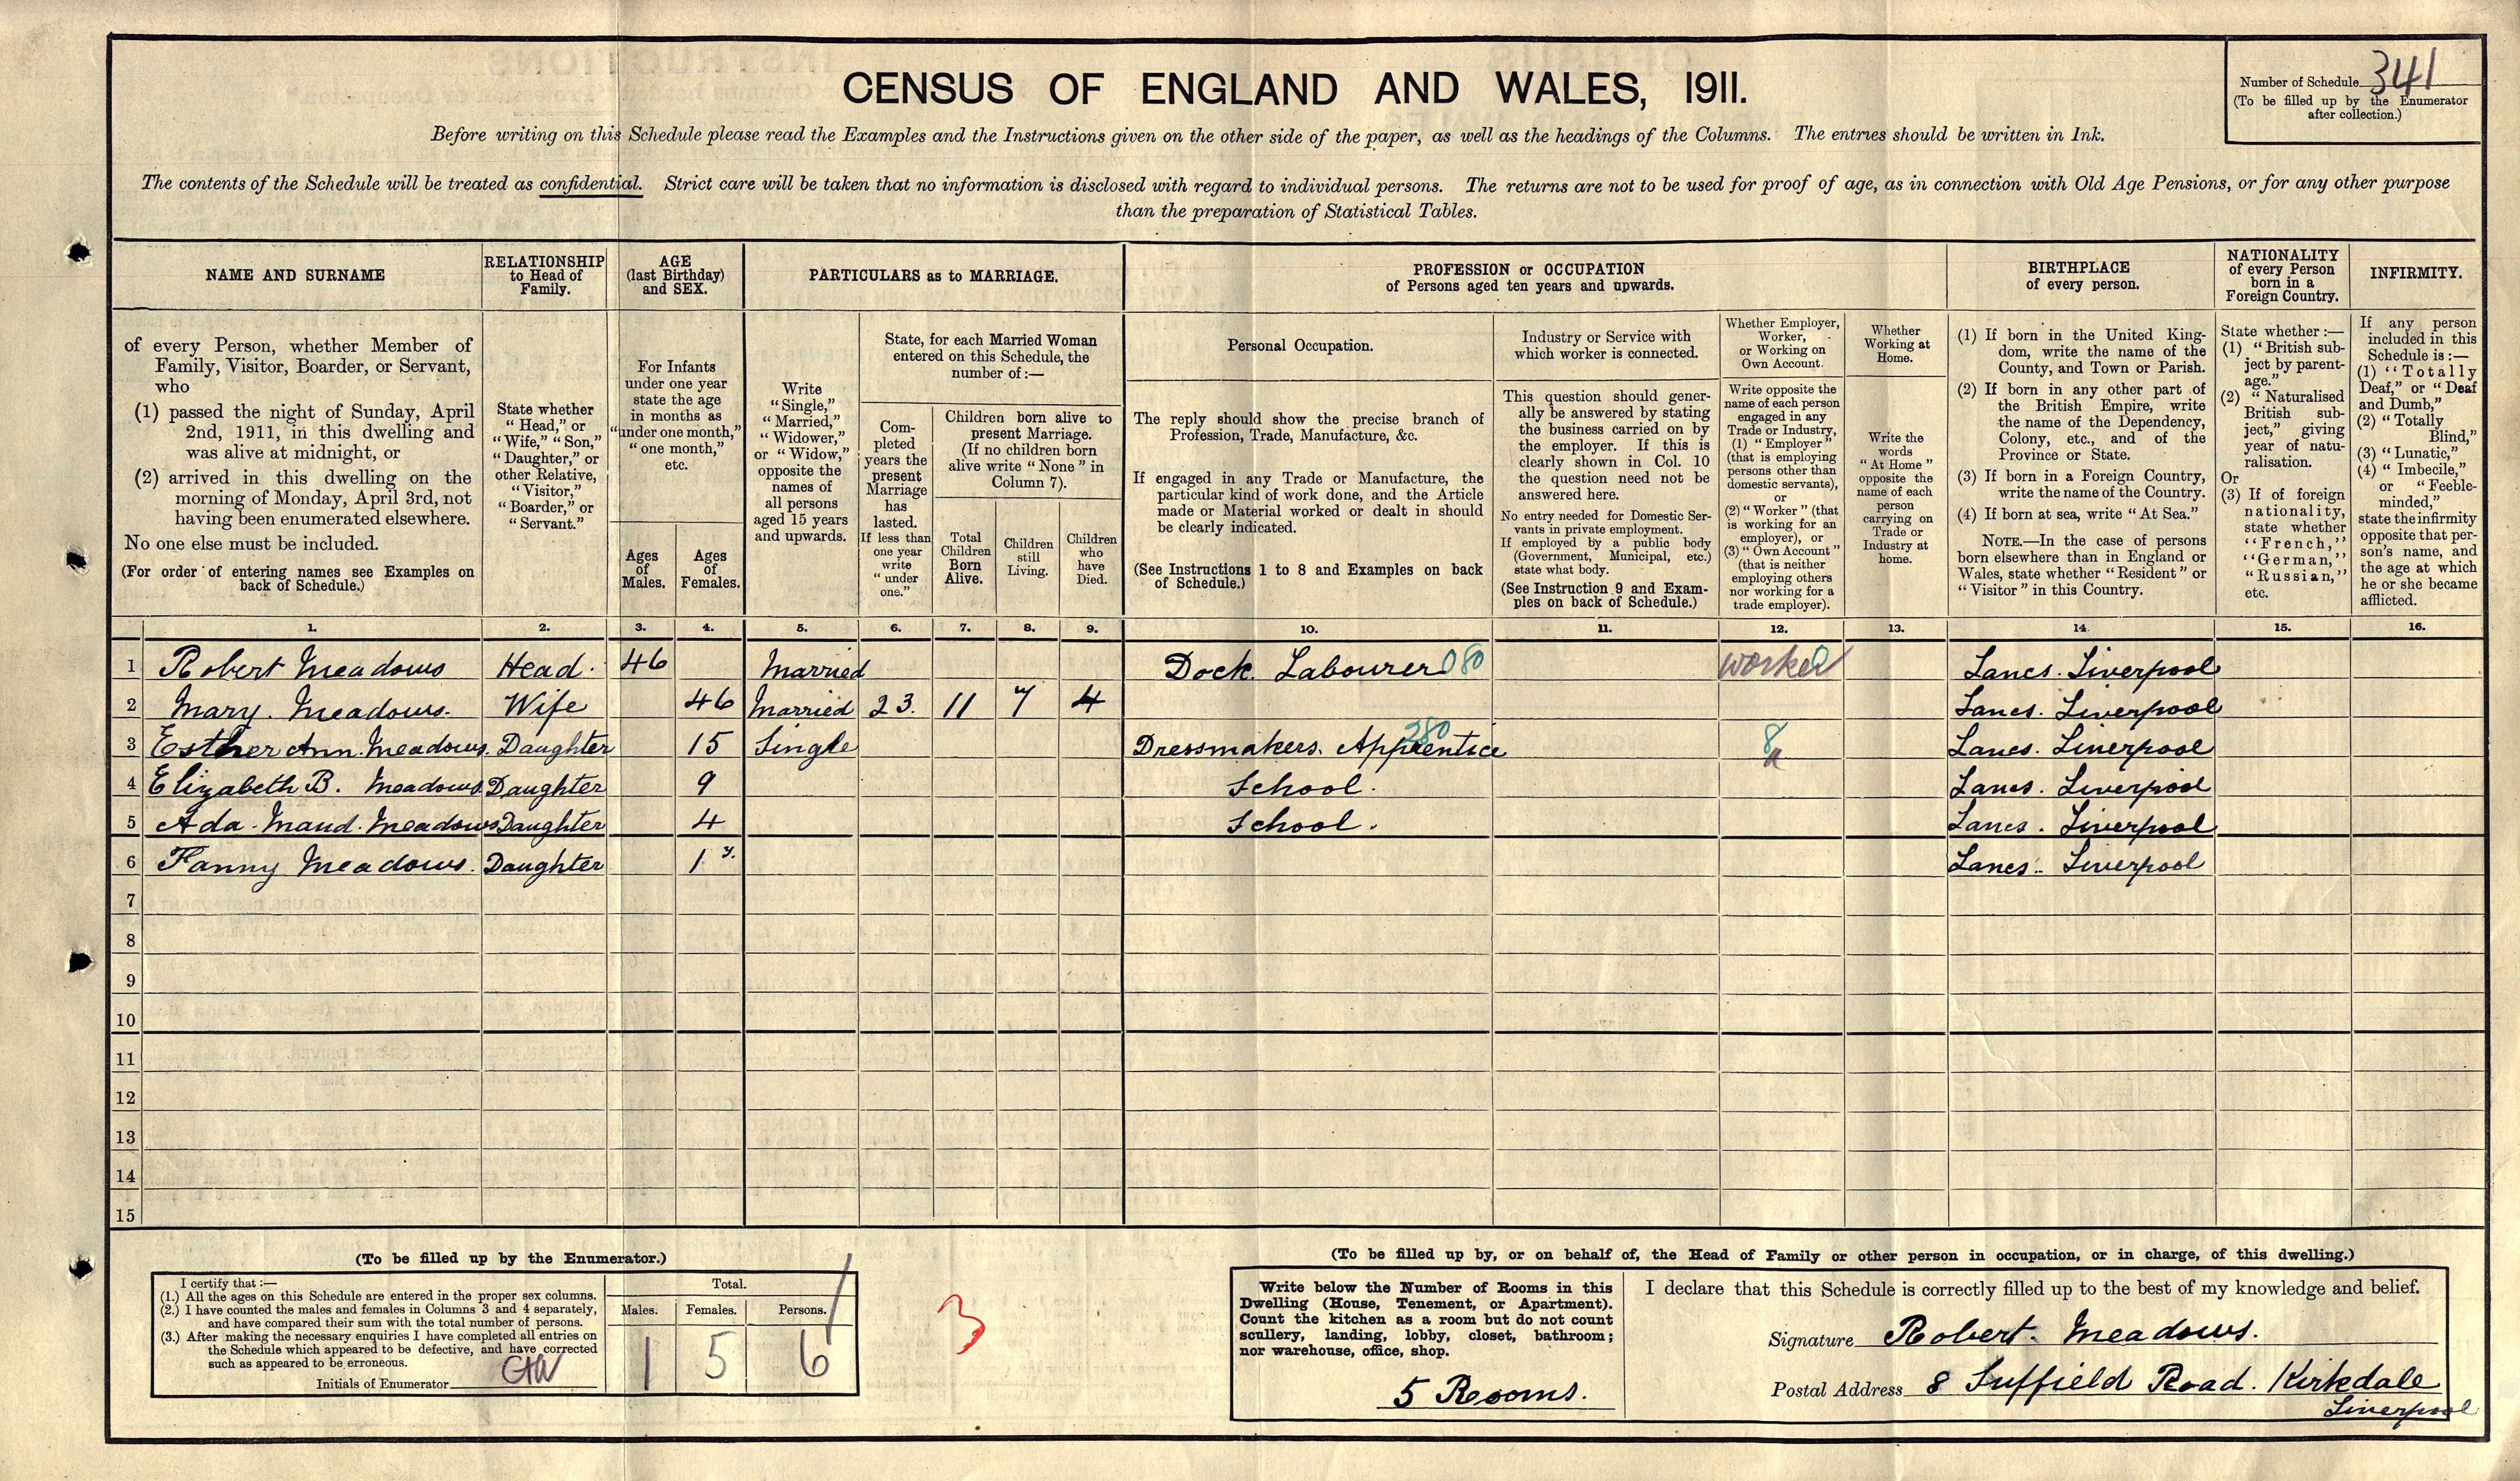 CENSUS OF ENGLAND AND WALES, 1911.
Number of Schedule 341
(To be filled up by the Enumerator
after collection.)
Before writing on this Schedule please read the Examples and the Instructions given on the other side of the paper, as well as the headings of the Columns. The entries should be written in Ink.
The contents of the Schedule will be treated as confidential. Strict care will be taken that no information is disclosed with regard to individual persons. The returns are not to be used for proof of age, as in connection with Old Age Pensions, or for any other purpose
than the preparation of Statistical Tables.
NAME AND SURNAME
of every Person, whether Member of
Family, Visitor, Boarder, or Servant,
who
(1) passed the night of Sunday, April
2nd, 1911, in this dwelling and
was alive at midnight, or
(2) arrived in this dwelling on the
morning of Monday, April 3rd, not
having been enumerated elsewhere.
No one else must be included.
(For order of entering names see Examples on
back of Schedule.)
RELATIONSHIP
to Head of
Family.
State whether
"Head," or
"Wife," "Son,"
"Daughter," or
other Relative,
"Visitor,"
"Boarder," or
"Servant."
AGE
(last Birthday)
and SEX.
For Infants
under one year
state the age
in months as
"under one month,"
"one month,"
etc.
Ages
of
Males.
Ages
of
Females.
PARTICULARS as to MARRIAGE.
Write
"Single,"
"Married,"
"Widower,"
or "Widow,"
opposite the
names of
all persons
aged 15 years
and upwards.
State, for each Married Woman
entered on this Schedule, the
number of:—
Com-
pleted
years the
present
Marriage
has
lasted.
If less than
one year
write
"under
one."
Children born alive to
present Marriage.
(If no children born
alive write "None" in
Column 7).
Total
Children
Born
Alive.
Children
still
Living.
Children
who
have
Died.
PROFESSION or OCCUPATION
of Persons aged ten years and upwards.
Personal Occupation.
The reply should show the precise branch of
Profession, Trade, Manufacture, &c.
If engaged in any Trade or Manufacture, the
particular kind of work done, and the Article
made or Material worked or dealt in should
be clearly indicated.
(See Instructions 1 to 8 and Examples on back
of Schedule.)
Industry or Service with
which worker is connected.
This question should gener-
ally be answered by stating
the business carried on by
the employer. If this is
clearly shown in Col. 10
the question need not be
answered here.
No entry needed for Domestic Ser-
vants in private employment.
If employed by a public body
(Government, Municipal, etc.)
state what body.
(See Instruction 9 and Exam-
ples on back of Schedule.)
Whether Employer,
Worker,
or Working on
Own Account.
Write opposite the
name of each person
engaged in any
Trade or Industry,
(1) "Employer"
(that is employing
persons other than
domestic servants),
or
(2) "Worker" (that
is working for an
employer), or
(3) "Own Account"
(that is neither
employing others
nor working for a
trade employer).
Whether
Working at
Home.
Write the
words
"At Home"
opposite the
name of each
person
carrying on
Trade or
Industry at
home.
BIRTHPLACE
of every person.
(1) If born in the United King-
dom, write the name of the
County, and Town or Parish.
(2) If born in any other part of
the British Empire, write
the name of the Dependency,
Colony, etc., and of the
Province or State.
(3) If born in a Foreign Country,
write the name of the Country.
(4) If born at sea, write "At Sea."
NOTE.—In the case of persons
born elsewhere than in England or
Wales, state whether "Resident" or
"Visitor" in this Country.
NATIONALITY
of every Person
born in a
Foreign Country.
State whether:—
(1) "British sub-
ject by parent-
age."
(2) "Naturalised
British sub-
ject," giving
year of natu-
ralisation.
Or
(3) If of foreign
nationality,
state whether
"French,"
"German,"
"Russian,"
etc.
INFIRMITY.
If any person
included in this
Schedule is:—
(1) "Totally
Deaf," or "Deaf
and Dumb,"
(2) "Totally
Blind,"
(3) "Lunatic,"
(4) "Imbecile,"
or "Feeble-
minded,"
state the infirmity
opposite that per-
son's name, and
the age at which
he or she became
afflicted.
1. 2. 3. 4. 5. 6. 7. 8. 9. 10. 11. 12. 13. 14. 15. 16.
1 Robert Meadows Head. 46 Married Dock. Labourer 080 Worker 0 Lancs. Liverpool
2 Mary. Meadows. Wife 46 Married 23. 11 7 4 Lancs. Liverpool
3 Esther Ann. Meadows. Daughter 15 Single Dressmakers. Apprentice 280 8 Lancs. Liverpool
4 Elizabeth B. Meadows Daughter 9 School. Lancs. Liverpool
5 Ada. Maud. Meadows Daughter 4 School. Lancs. Liverpool
6 Fanny Meadows. Daughter 1 y. Lancs. Liverpool
7
8
9
10
11
12
13
14
15
(To be filled up by the Enumerator.)
I certify that:—
(1.) All the ages on this Schedule are entered in the proper sex columns.
(2.) I have counted the males and females in Columns 3 and 4 separately,
and have compared their sum with the total number of persons.
(3.) After making the necessary enquiries I have completed all entries on
the Schedule which appeared to be defective, and have corrected
such as appeared to be erroneous.
Initials of Enumerator
Total.
Males. Females. Persons.
1 5 6
3
(To be filled up by, or on behalf of, the Head of Family or other person in occupation, or in charge, of this dwelling.)
Write below the Number of Rooms in this
Dwelling (House, Tenement, or Apartment).
Count the kitchen as a room but do not count
scullery, landing, lobby, closet, bathroom;
nor warehouse, office, shop.
5 Rooms.
I declare that this Schedule is correctly filled up to the best of my knowledge and belief.
Signature Robert. Meadows.
Postal Address 8 Suffield Road. Kirkdale
Liverpool